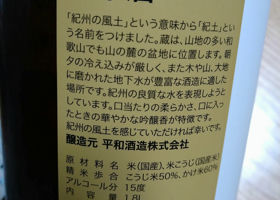 「紀州の風土」という意味から「紀土」とい
う名前をつけました。蔵は、山地の多い和
歌山でも山の麓の盆地に位置します。朝
夕の冷え込みが厳しく、また木や山、大地
に磨かれた地下水が豊富な酒造に適した
場所です。紀州の良質な水を表現しようと
しています。口当たりの柔らかさ、口に入っ
たときの華やかな吟醸香が特徴です。
紀州の風土を感じていただければ幸いです。
醸造元 平和酒造株式会社
原材料名 米(国産)、米こうじ(国産米)
精米歩合 こうじ米50%、かけ米60%
アルコール分 15度
内容量 1.8L